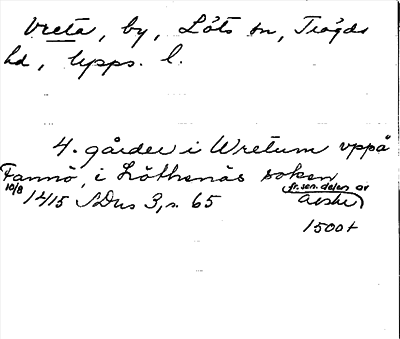 Vreta, by, Löts sn, Trögds
hd, Upps. l.
4. gårder i Wretum vppå
Fannö, i Löthenäs soken
10/8 1415 SDns 3, s. 65
fr. sen. delen av
1500 t